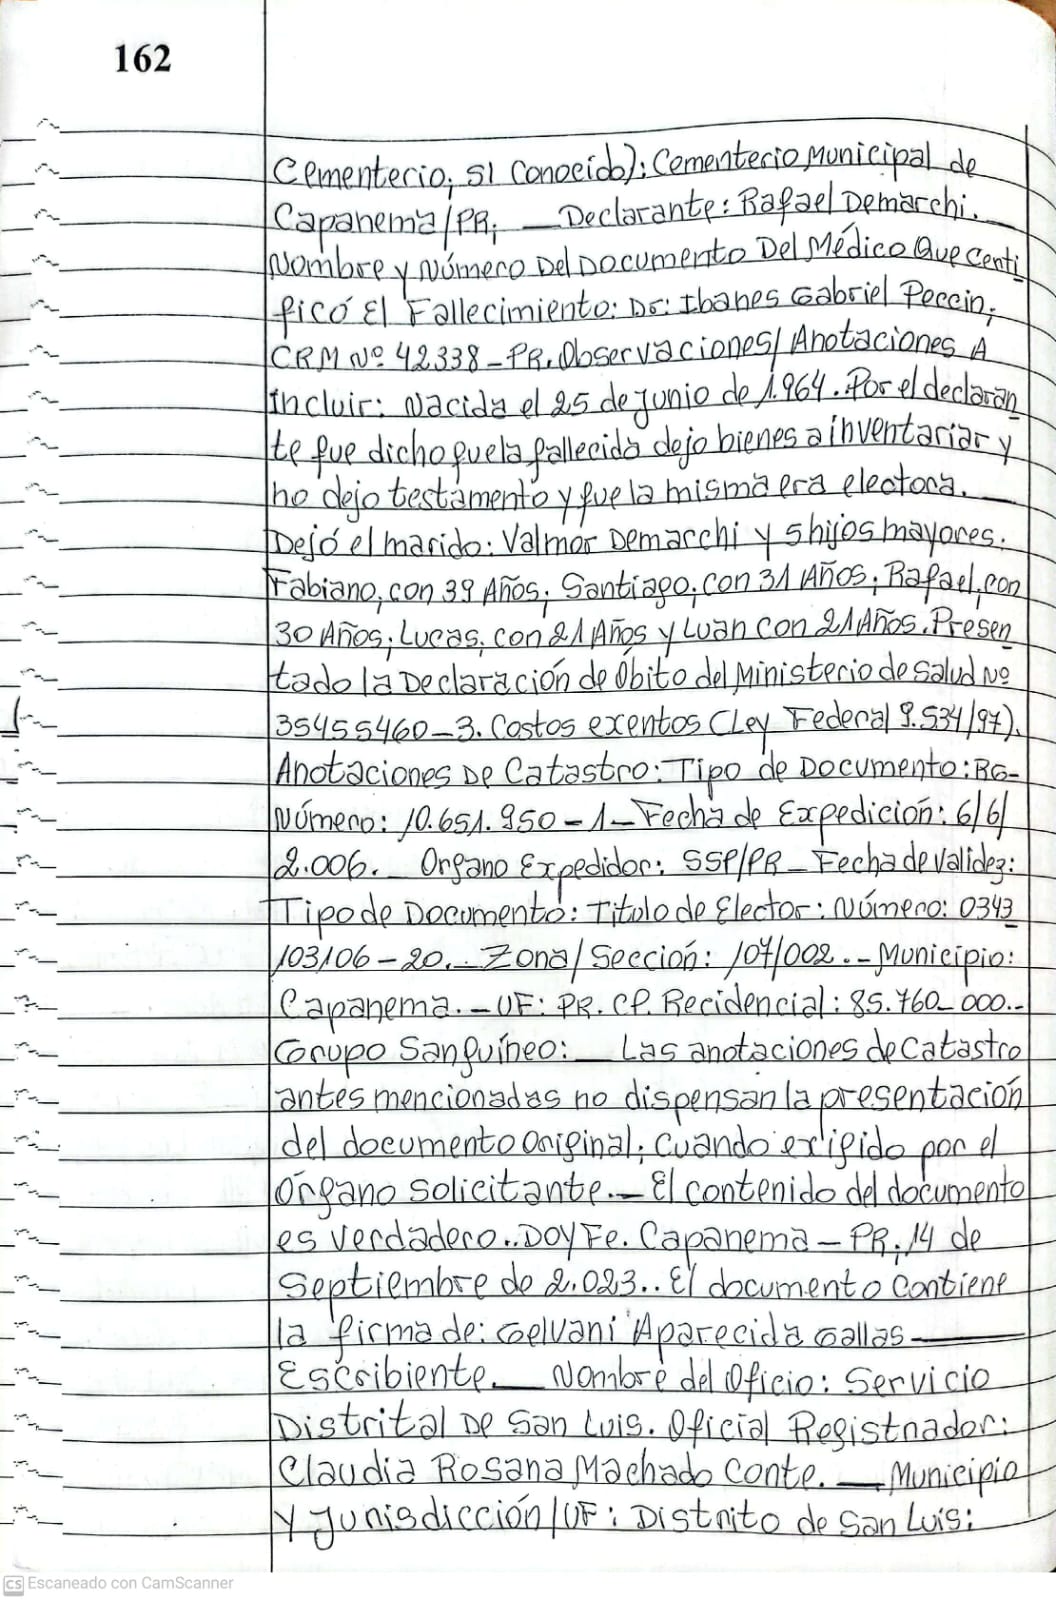 162
Cementerio, si Conocido): Cementerio Municipal de
Capanema/PR, — Declarante: Rafael Demarchi.
Nombre y Número Del Documento Del Médico Que Centi
ficó El Fallecimiento: Dr: Ibanes Gabriel Peccin,
CRM Nº 42338-PR. Observaciones/ Anotaciones A
incluir: Nacida el 25 de junio de 1.964. Por el declaran
te fue dicho que la fallecida dejo bienes a inventariar y
no dejo testamento y que la misma era electora. —
Dejó el marido: Valmor Demarchi y 5 hijos mayores.
Fabiano, con 39 Años, Santiago, con 31 Años, Rafael, con
30 Años, Lucas, con 21 Años y Luan con 21 Años. Presen
tado la Declaración de Óbito del Ministerio de Salud Nº
35455460-3. Costos exentos (Ley Federal 9.534/97).
Anotaciones De Catastro: Tipo de Documento: RG-
Número: 10.651.950-1- Fecha de Expedición: 6/6/
2.006. Organo Expedidor: SSP/PR - Fecha de Validez:
Tipo de Documento: Titulo de Elector: Número: 0343
103106-20. - Zona/Sección: 107/002. - Municipio:
Capanema. - UF: PR. CP. Recidencial: 85.760-000.-
Grupo Sanguíneo: — Las anotaciones de Catastro
antes mencionadas no dispensan la presentación
del documento original, cuando exigido por el
Órgano solicitante. — El contenido del documento
es verdadero.. Doy Fe. Capanema - PR, 14 de
Septiembre de 2.023.. El documento Contiene
la firma de: Gelvani Aparecida Gallas —
Escribiente. — Nombre del Oficio: Servicio
Distrital De San Luis. Oficial Registrador:
Claudia Rosana Machado Conte. — Municipio
Y Jurisdicción/UF: Distrito de San Luis:
CS Escaneado con CamScanner